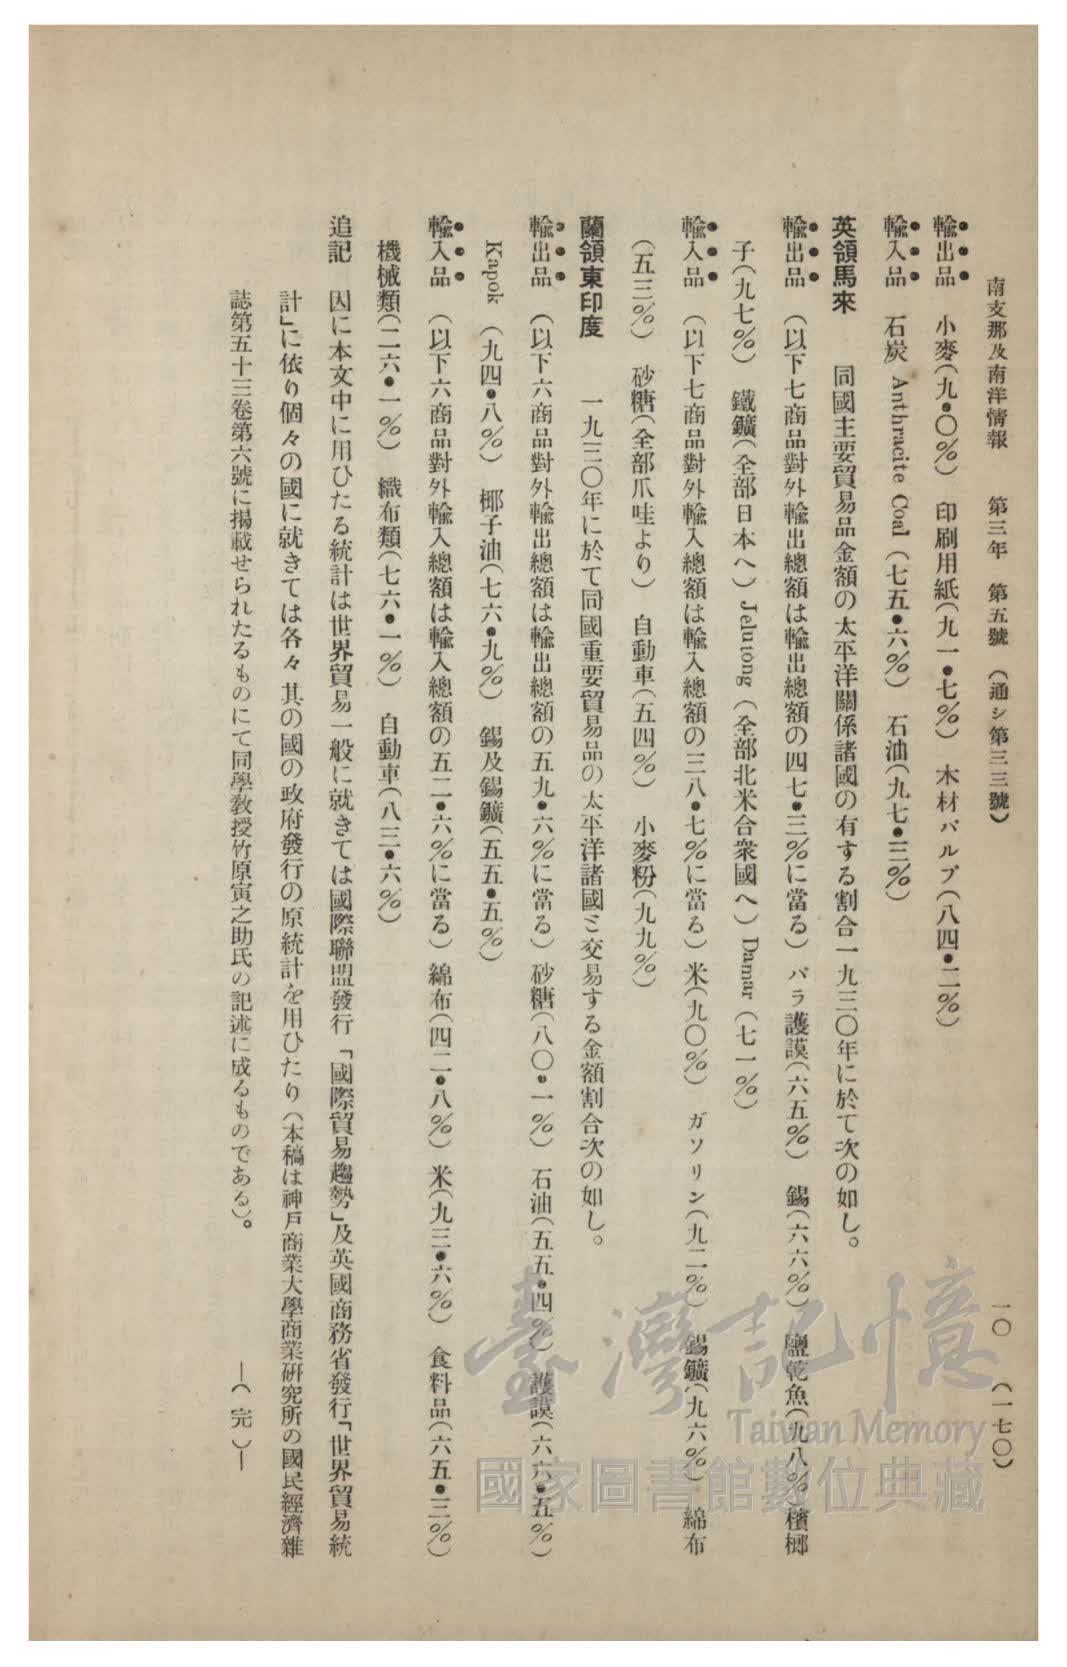 南支那及南洋情報　第三年　第五號　（通シ第三三號）　一〇　（一七〇）
輸出品　小麥（九・〇％）　印刷用紙（九一・七％）　木材パルプ（八四・二％）
輸入品　石炭 Anthracite Coal（七五・六％）　石油（九七・三％）
英領馬來　同國主要貿易品金額の太平洋關係諸國の有する割合一九三〇年に於て次の如し。
輸出品　（以下七商品對外輸出總額は輸出總額の四七・三％に當る）パラ護謨（六五％）　錫（六六％）　鹽乾魚（九八％）檳榔
子（九七％）　鐵鑛（全部日本へ）Jelutong（全部北米合衆國へ）Damar（七一％）
輸入品　（以下七商品對外輸入總額は輸入總額の三八・七％に當る）米（九〇％）　ガソリン（九二％）　錫鑛（九六％）　綿布
（五三％）　砂糖（全部爪哇より）　自動車（五四％）　小麥粉（九九％）
蘭領東印度　一九三〇年に於て同國重要貿易品の太平洋諸國と交易する金額割合次の如し。
輸出品　（以下六商品對外輸出總額は輸出總額の五九・六％に當る）砂糖（八〇・一％）　石油（五五・四％）　護謨（六六・五％）
Kapok　（九四・八％）　椰子油（七六・九％）　錫及錫鑛（五五・五％）
輸入品　（以下六商品對外輸入總額は輸入總額の五二・六％に當る）綿布（四二・八％）　米（九三・六％）　食料品（六五・三％）
機械類（二六・一％）　織布類（七六・一％）　自動車（八三・六％）
追記　因に本文中に用ひたる統計は世界貿易一般に就きては國際聯盟發行「國際貿易趨勢」及英國商務省發行「世界貿易統
計」に依り個々の國に就きては各々其の國の政府發行の原統計を用ひたり（本稿は神戸商業大學商業研究所の國民經濟雜
誌第五十三卷第六號に揭載せられたるものにて同學敎授竹原寅之助氏の記述に成るものである）。　―（完）―
臺灣記憶
Taiwan Memory
國家圖書館數位典藏